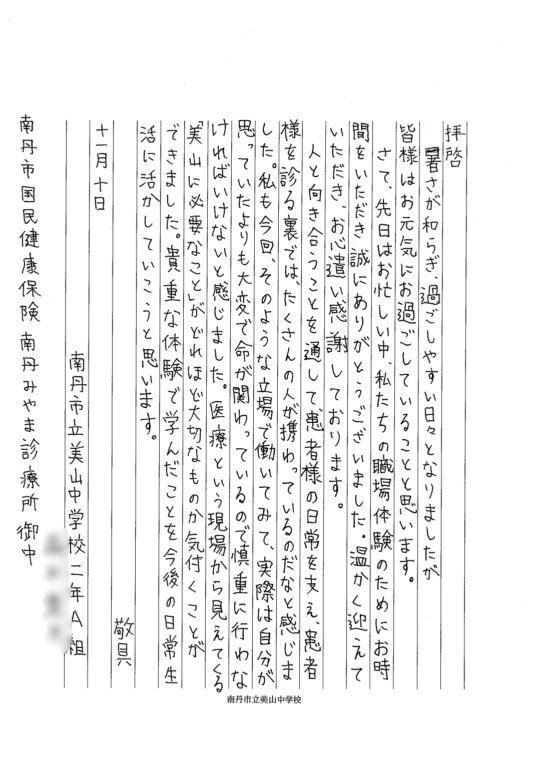 拝啓
暑さが和らぎ、過ごしやすい日々となりましたが
皆様はお元気にお過ごしていることと思います。
さて、先日はお忙しい中、私たちの職場体験のためにお時
間をいただき誠にありがとうございました。温かく迎えて
いただき、お心遣い感謝しております。
人と向き合うことを通して患者様の日常を支え、患者
様を診る裏では、たくさんの人が携わっているのだなと感じま
した。私も今回、そのような立場で働いてみて、実際は自分が
思っていたよりも大変で命が関わっているので慎重に行わな
ければいけないと感じました。医療という現場から見えてくる
「美山に必要なこと」がどれほど大切なものか気付くことが
できました。貴重な体験で学んだことを今後の日常生
活に活かしていこうと思います。
敬具
十一月十日
南丹市立美山中学校二年A組
南丹市国民健康保険 南丹みやま診療所 御中
南丹市立美山中学校